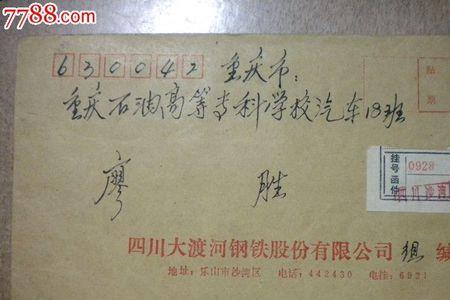 7788.com
630042 重庆市:
重庆石油高等专科学校汽车18班
贴
票
挂号函件
0928
四川沙湾
廖 胜
四川大渡河钢铁股份有限公司 编
地址:乐山市沙湾区 电话:442430 电挂:6921